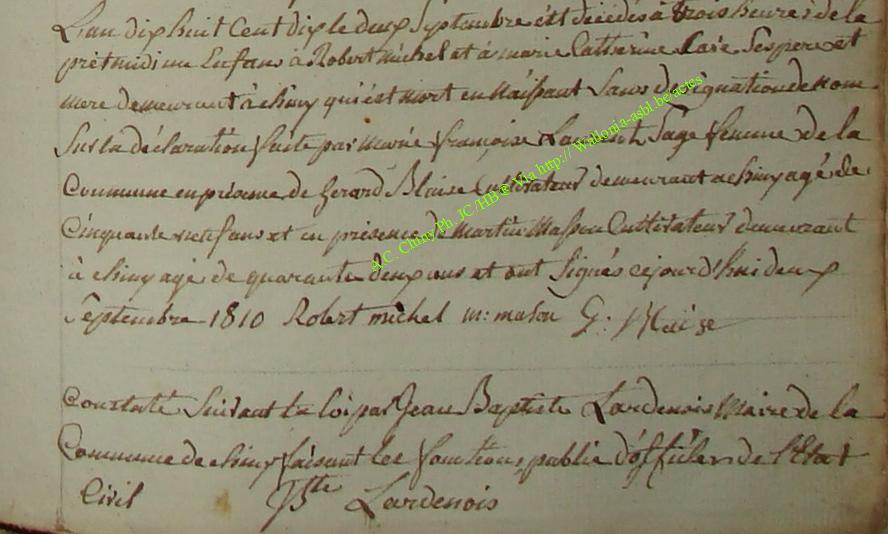 L'an dix huit Cent dix le deux Septembre est décédés à trois heures de la
prètmidi un Enfans à Robert michel et à marie Catherine Ses pere et
mere demeurant à chiny qui est mort en Naissant Sans désignation de nom
Sur la déclaration faite par marie françoise Laurent Sage femme de la
Commune en présence de Gerard Blaise Cultivateur demeurant a chiny agé de
Cinquante neuf ans et en présence de martin Masson Cultivateur demeurant
à chiny agé de quarante deux ans et ont Signés cejourd'hui deux
Septembre 1810 Robert michel m: mason G: Blaise
Constaté Suivant la loi par Jean Baptiste Lardenois Maire de la
Commune de chiny faisant les fonctions public d'officier de l'Etat
Civil JBte Lardenois
A.C. Chiny Ph. JC/HB @ Via http:// Wallonia-asbl.be/actes